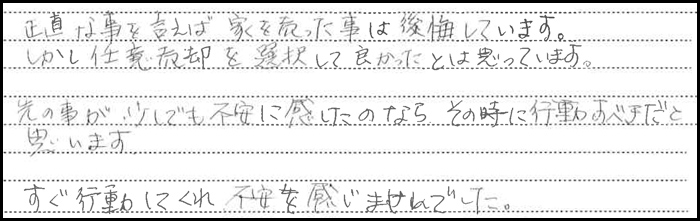 正直な事を言えば 家を売った事は後悔しています。
しかし任意売却を選択して良かったとは思っています。
先の事が 少しでも不安に感じたのなら その時に行動すべきだと
思います。
すぐ行動してくれ 不安を感じませんでした。